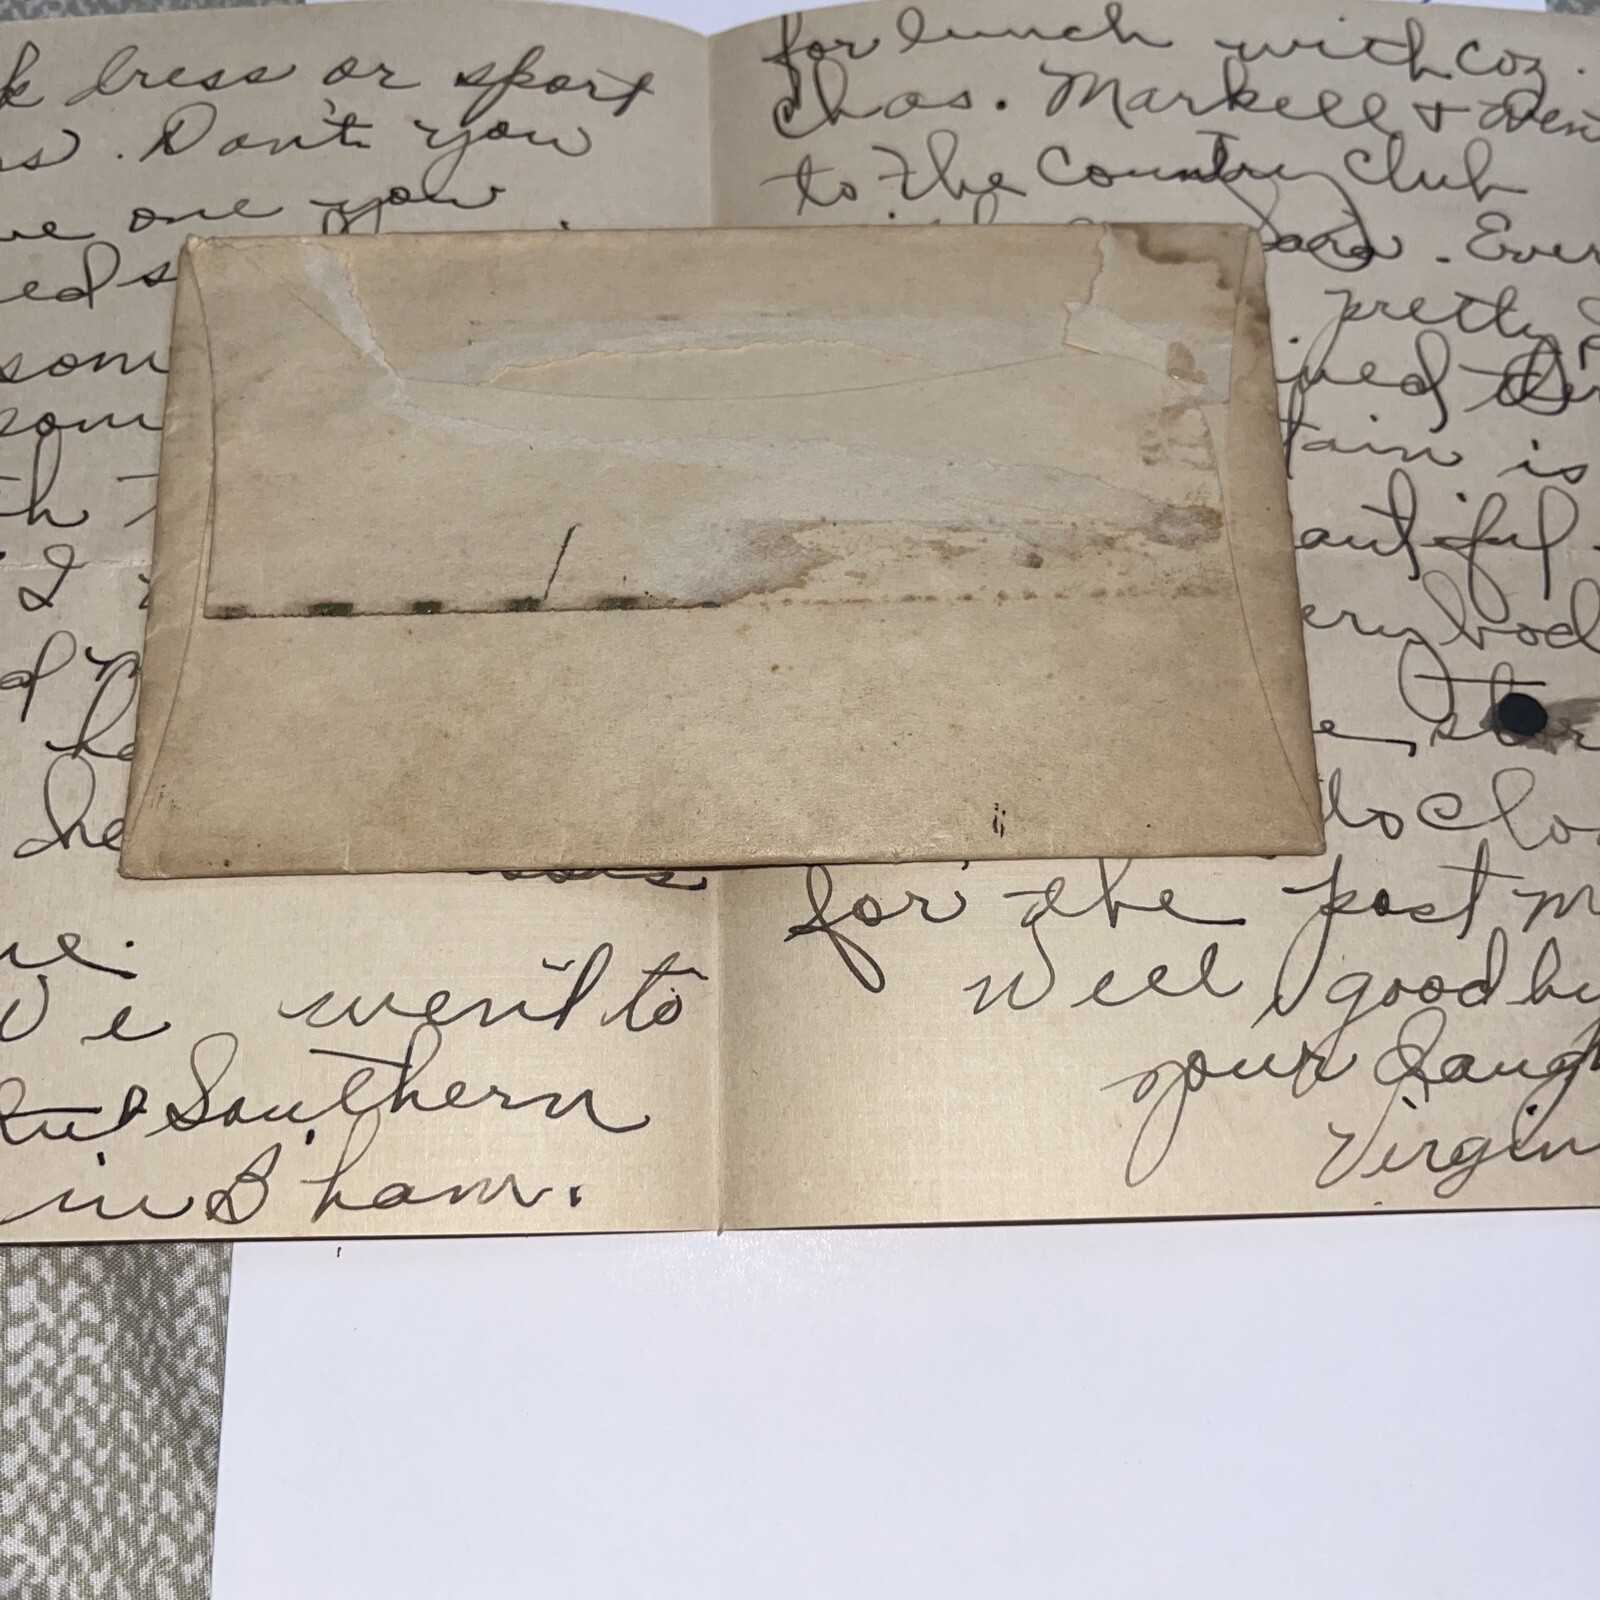 k dress or sport
s. Don't you
ve one you
ed s
som
som
th
I
d
he
he
ne.
We went to
Southern
in B'ham.
for lunch with coz.
Chas. Markell &
to the Country Club
. Ever
pretty
ined
tain is
autiful.
ery bod
to clo
for the post m
Well good by
your daugh
Virgin